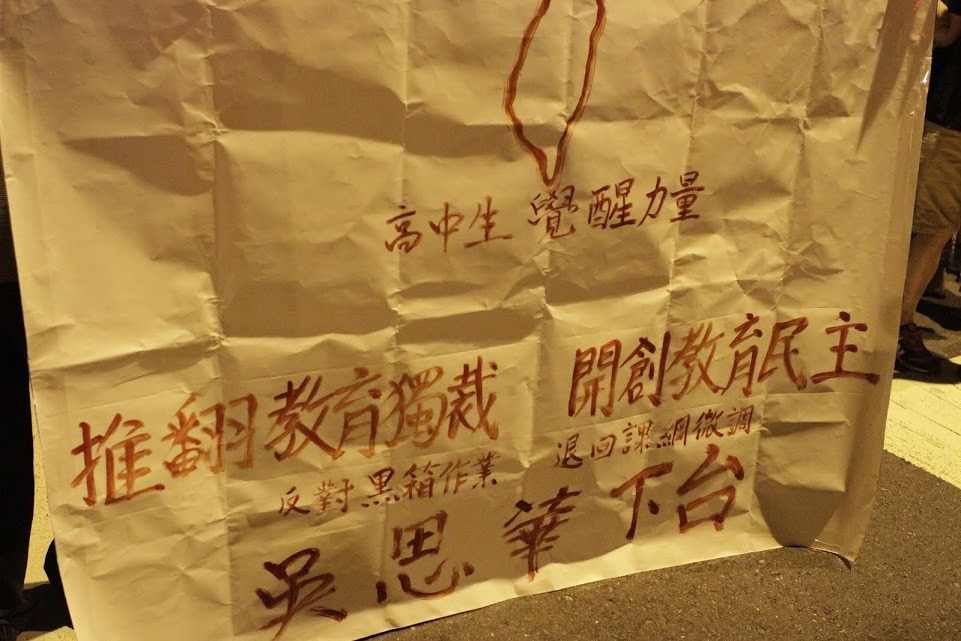 高中生 覺醒力量
推翻教育獨裁 開創教育民主
反對黑箱作業 退回課綱微調
吳思華下台